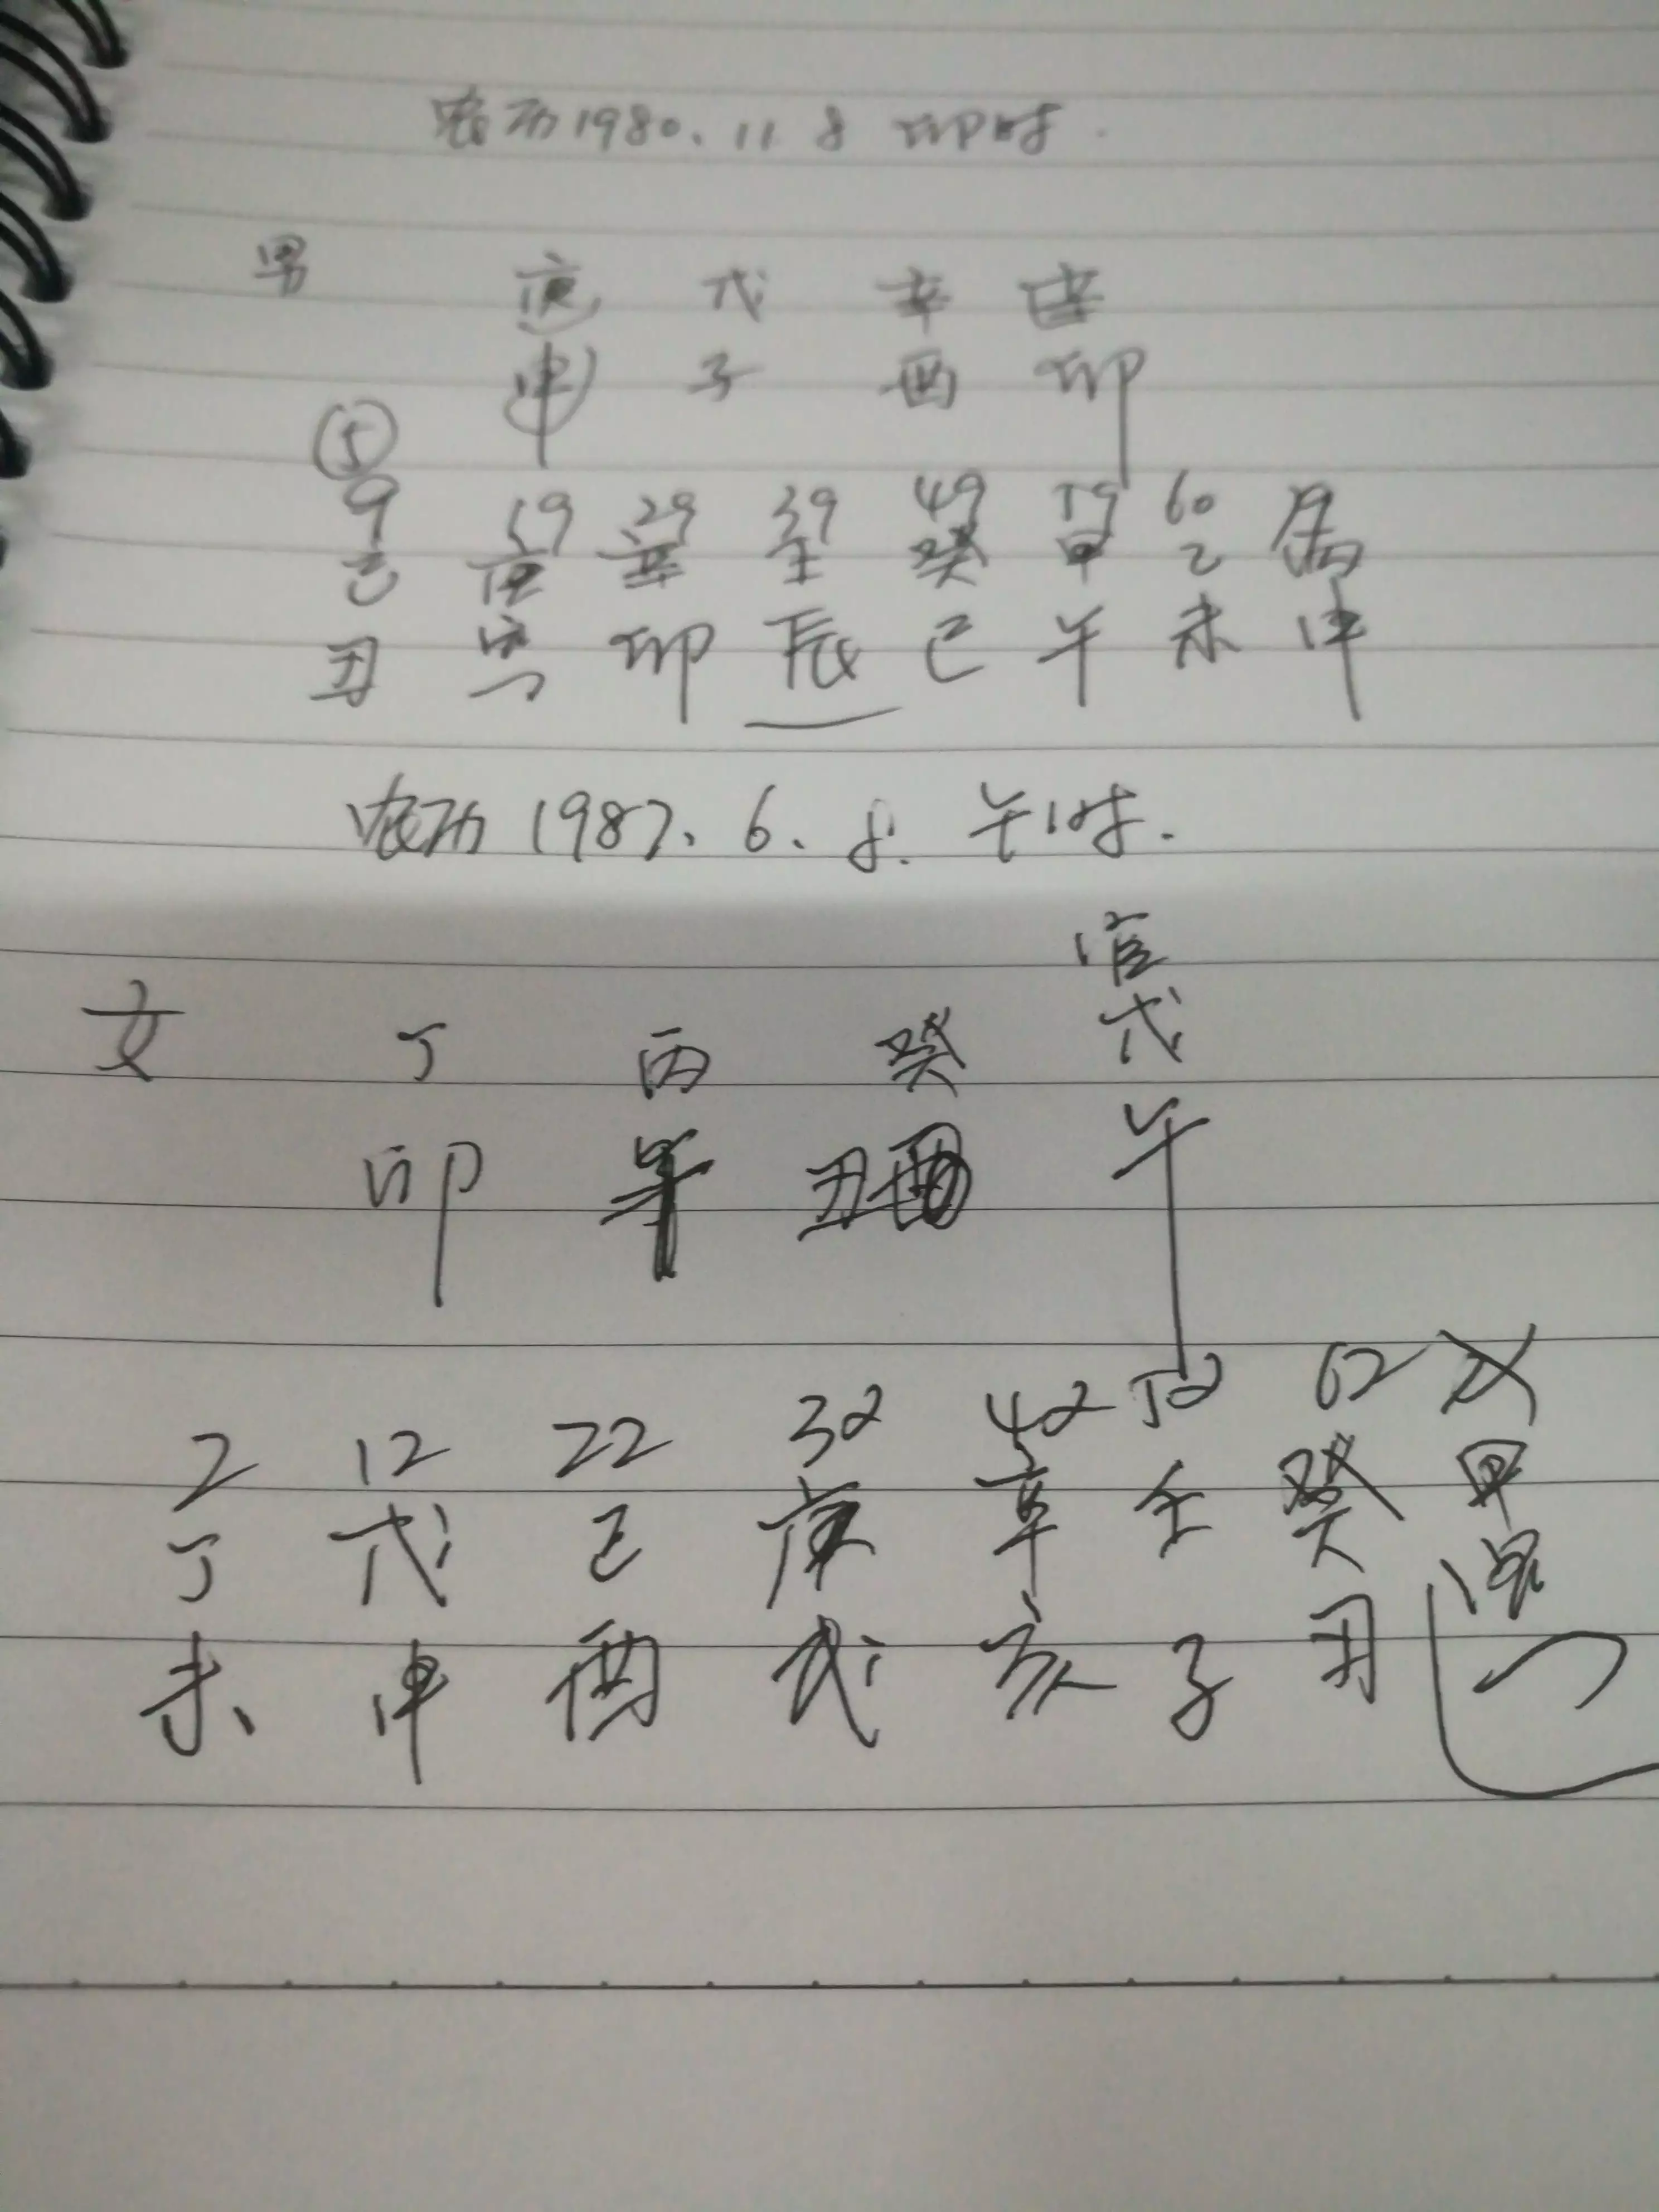 农历1980.11 8 卯时.
男 庚 戊 辛 辛
申 子 酉 卯
5
9 19 29 39 49 59 60
己 庚 辛 壬 癸 甲 乙 丙
丑 寅 卯 辰 巳 午 未 申
农历 1987. 6. 8. 午时.
官
女 丁 丙 癸 戊
卯 午 丑 午
2 12 22 32 42 52 62
丁 戊 己 庚 辛 壬 癸 甲
未 申 酉 戌 亥 子 丑